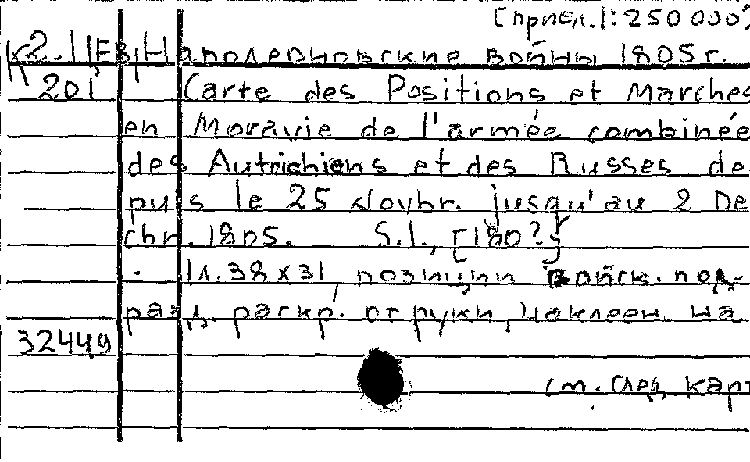 [прибл.1:250 000]
К2.IЕв Наполеоновские войны 1805г.
201 Carte des Positions et Marches
en Moravie de l'armée combinée
des Autrichiens et des Russes de-
puis le 25 Novbr. jusqu'au 2 De-
cbr. 1805. S.l., [180?]
1л. 38x31, позиции войск. под-
разд. раскр. от руки, наклеен. на
32449
См. след. карт